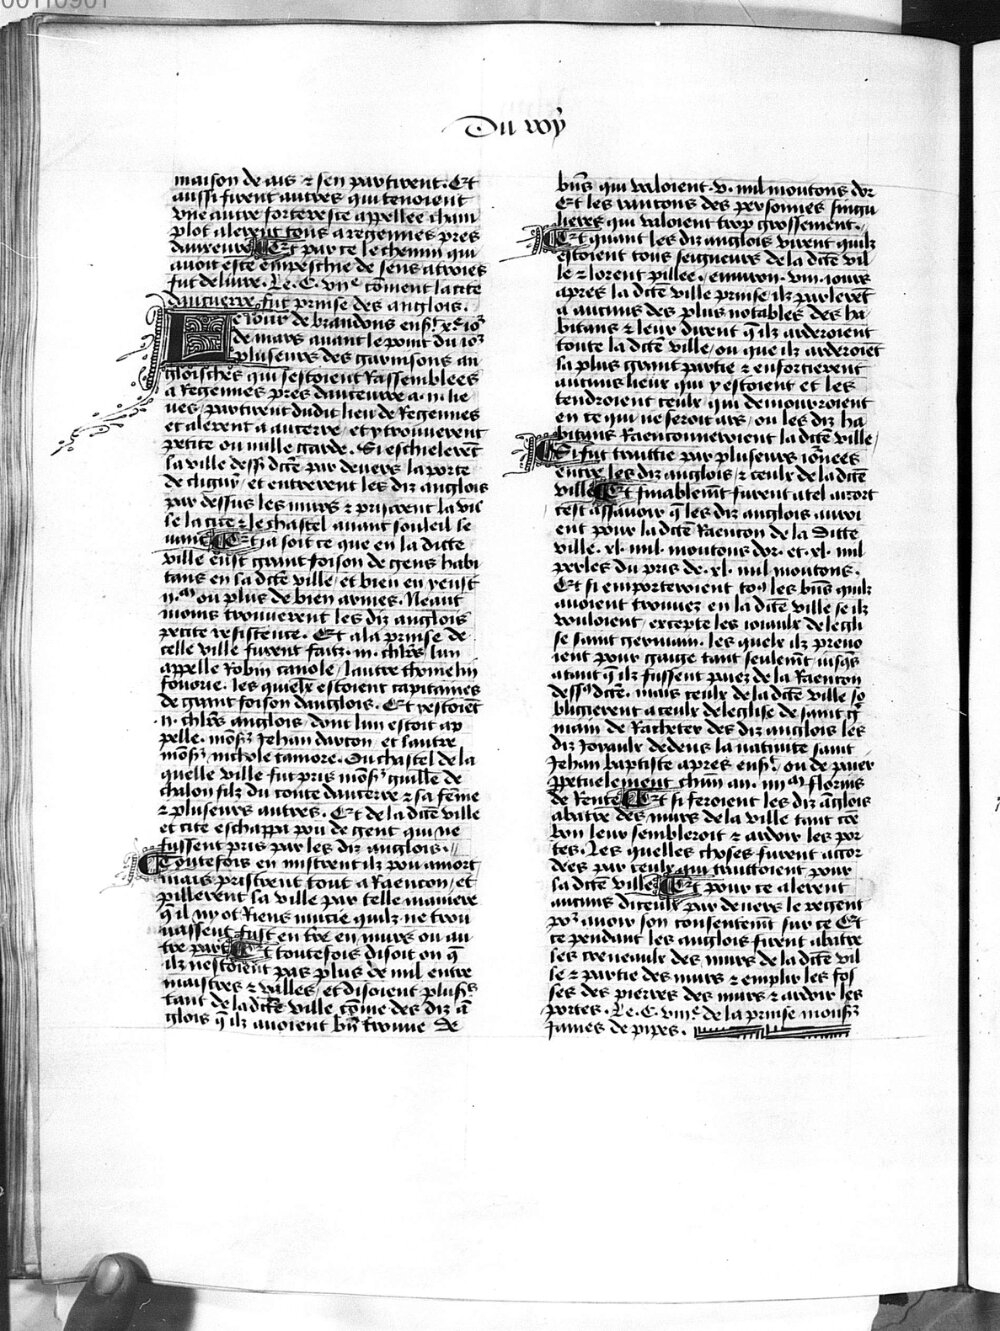 00110901
Du roy
maison de aiz ⁊ sen partirent. Et
aussi firent autres qui tenoient
vne autre forteresse appellee cham
plot alerent tous a regennes pres
dauceurre Et par ce le chemin qui
auoit este empeschie de sens a troies
fut deliure. Le .C. vii.e com̄ent la cite
daucuerre fut prinse des anglois.
Le iour de brandons ens. x.e io2
de mars auant le point du io2
pluseurs des garnisons an
gloisches qui sestoient Rassemblees
a Regennes pres dauceurre a .ii. lie
ues / partirent dudit lieu de Regennes
et alerent a aucerre / et y trouuerent
petite ou nulle garde. Si eschielerēt
la ville dess. dicte par deuers la porte
de cligny / et entrerent les diz anglois
par dessus les murs ⁊ pristrent la vil
le la cite ⁊ le chastel auant souleil le
uant Et ia soit ce que en la dicte
ville eust grant foison de gens habi
tans en la dcte ville / et bien en yeust
ii.m ou plus de bien armes. Neant
moins trouuerent les diz anglois
petite resistence. Et a la prinse de
celle ville furent faiz .iii. chlrs lun
appelle Robin canole / lautre thomelin
fouque. les quelx estoient capitaines
de grant foison danglois. Et restoiēt
.ii. chlrs anglois / dont lun estoit ap
pelle. mons. Jehan darton et lautre
mons. nichole tamore. Ou chastel de la
quelle ville fut pris mons. guille de
chalon filz du conte daucerre ⁊ sa fēme
⁊ pluseurs autres. Et de la dicte ville
et cite eschappa pou de gent qui ne
fussent pris par les diz anglois.
Toutefois en mistrent ilz pou a mort
mais pristrent tout a Raencon / et
pillerent la ville par telle maniere
q̄ il ny ot Riens mucie quilz ne trou
uassent fust en tre en murs ou au
tre part Et toutefois disoit on q̄
ilz nestoient pas plus de mil entre
maistres ⁊ valles / et disoient plus.s
tant de la dcte ville cōme des diz ā
glois q̄ ilz auoient bn̄ trouue de
bn̄s qui valoient .v. mil moutons dor
Et les rancons des personnes singu
lieres qui valoient trop grossement.
Et quant les diz anglois virent quilz
estoient tous seigneurs de la dcte vil
le ⁊ lorent pillee / enuiron .viii. iours
apres la dcte ville prinse ilz parlerēt
a aucuns des plus notables des ha
bitans ⁊ leur dirent q̄ ilz arderoient
toute la dcte ville / ou que ilz arderoiēt
la plus grant partie ⁊ enforcieroient
aucuns lieux qui y estoient et les
tendroient ceulx qui demourroient
en ce qui ne seroit ars / ou les diz ha
bitans Raenconneroient la dcte ville /
Si fut traittie par pluseurs iōnees
entre les diz anglois ⁊ ceulx de la dcte
ville Et finablemt furent a tel acort
cest assauoir q̄ les diz anglois auroi
ent pour la dcte Raencon de la ditte
ville .xl. mil moutons dor. et .xl. mil
perles du pris de .xl. mil moutons.
Et si emporteroient to9 les bn̄s quilz
auoient trouuez en la dcte ville se ilz
vouloient / excepte les ioyaulx de legli
se saint germain. les quelx ilz preno
ient pour gaige tant seulemt iusqs
atant q̄ ilz fussent paiez de la Raencon
dess. dcte. mais ceulx de la dcte ville so
bligierent a ceulx de leglise de saint g̃
main de Racheter des diz anglois les
diz Joyaulx dedens la natiuite saint
Jehan baptiste apres ens. / ou de paier
ppetuelement chūn an .iiii.m florins
de Rente Et si feroient les diz āglois
abatre des murs de la ville tant cōe
bon leur sembleroit ⁊ ardoir les por
tes. Les quelles choses furent accor
dees par ceulx qui traittoient pour
la dcte ville Et pour ce alerent
aucuns diceulx par deuers le regent
po2 auoir son consentemt sur ce Et
ce pendant les anglois firent abatre
les creneaulx des murs de la dcte vil
le ⁊ partie des murs ⁊ emplir les fos
ses des pierres des murs ⁊ ardoir les
portes. Le .C. viii.e de la prinse mons.
James de pipes.